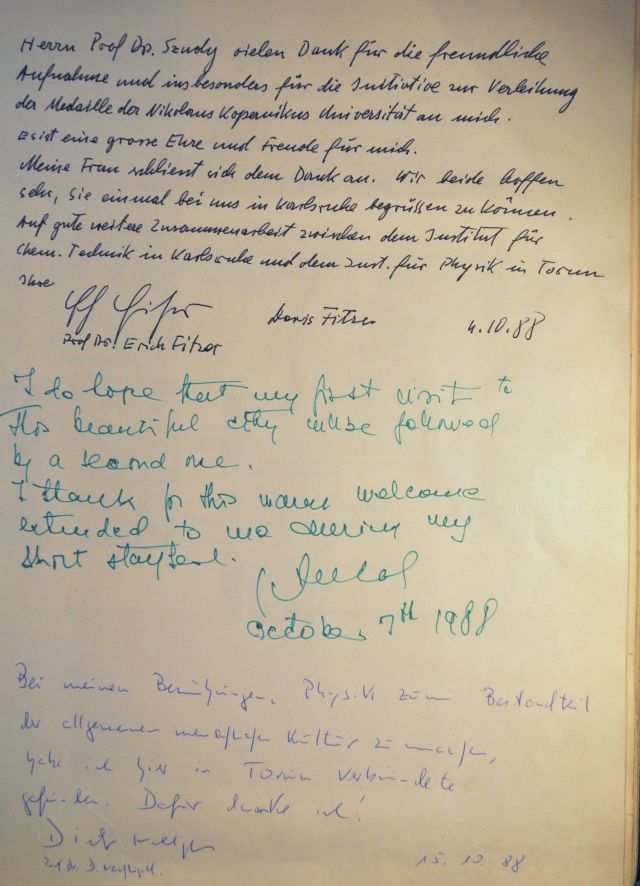 Herrn Prof Dr. Szudy vielen Dank für die freundliche
Aufnahme und insbesonders für die Initiative zur Verleihung
der Medaille der Nikolaus Kopernikus Universität an mich.
Es ist eine grosse Ehre und Freude für mich.
Meine Frau schliesst sich dem Dank an. Wir beide hoffen
sehr, Sie einmal bei uns in Karlsruhe begrüssen zu können.
Auf gute weitere Zusammenarbeit zwischen dem Institut für
Chem. Technik in Karlsruhe und dem Inst. für Physik in Torun
Ihre
Doris Fitzer 4.10.88
Prof Dr. Erich Fitzer
I do hope that my first visit to
this beautiful city will be followed
by a second one.
I thank for this warm welcome
extended to me during my
short stay
October 7th 1988
Bei meinen Bemühungen, Physik zum Bestandteil
der allgemeinen menschlichen Kultur zu machen,
habe ich hier in Torun Verbündete
gefunden. Dafür danke ich!
Prof. Dr. D.
15. 10. 88